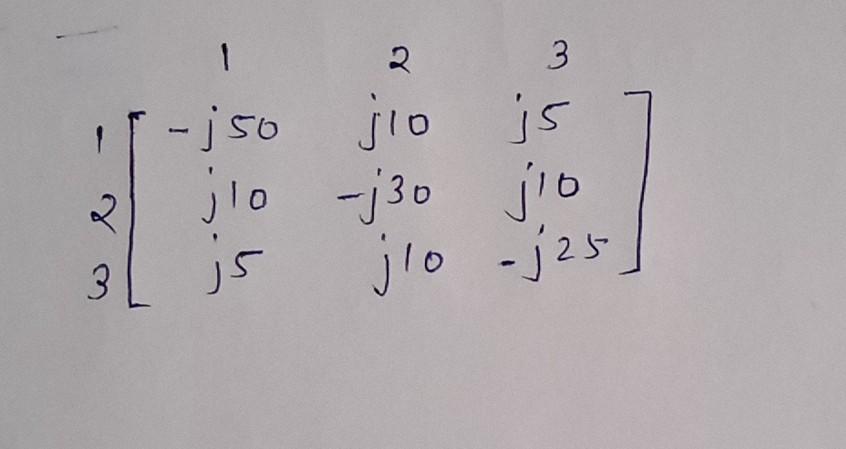 1 2 3
1 -j50 j10 j5
2 j10 -j30 j10
3 j5 j10 -j25